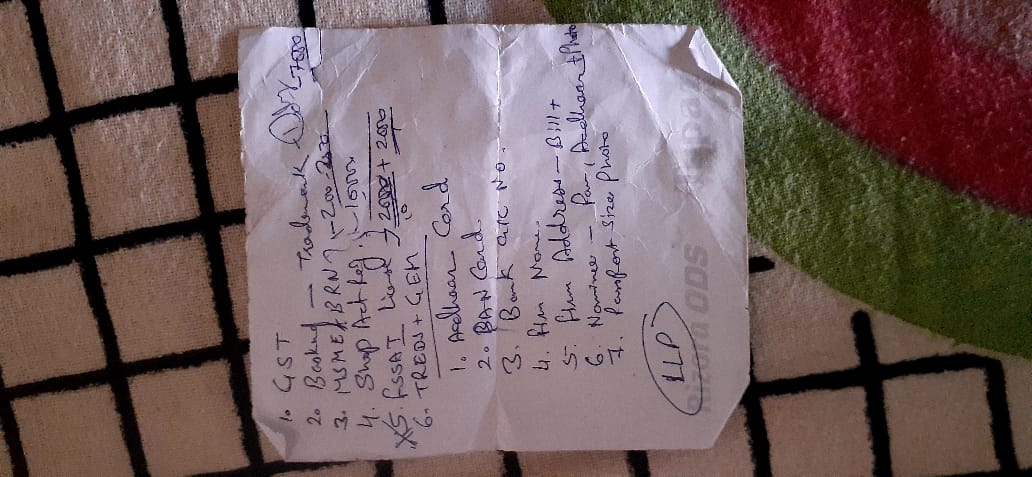 1. GST
2. Booking — Trademark 7000
3. MSME/BRN } - 200
4. Shop Act Reg. } - 1500
X5. FSSAI → 2000 + 2000
6. TREDS + GEM
1. Aadhaar Card
2. PAN Card.
3. Bank A/C No.
4. Firm Name.
5. Firm Address - Bill +
6. Nominee - Pan, Aadhaar + Photo
7. Passport Size Photo
LLP